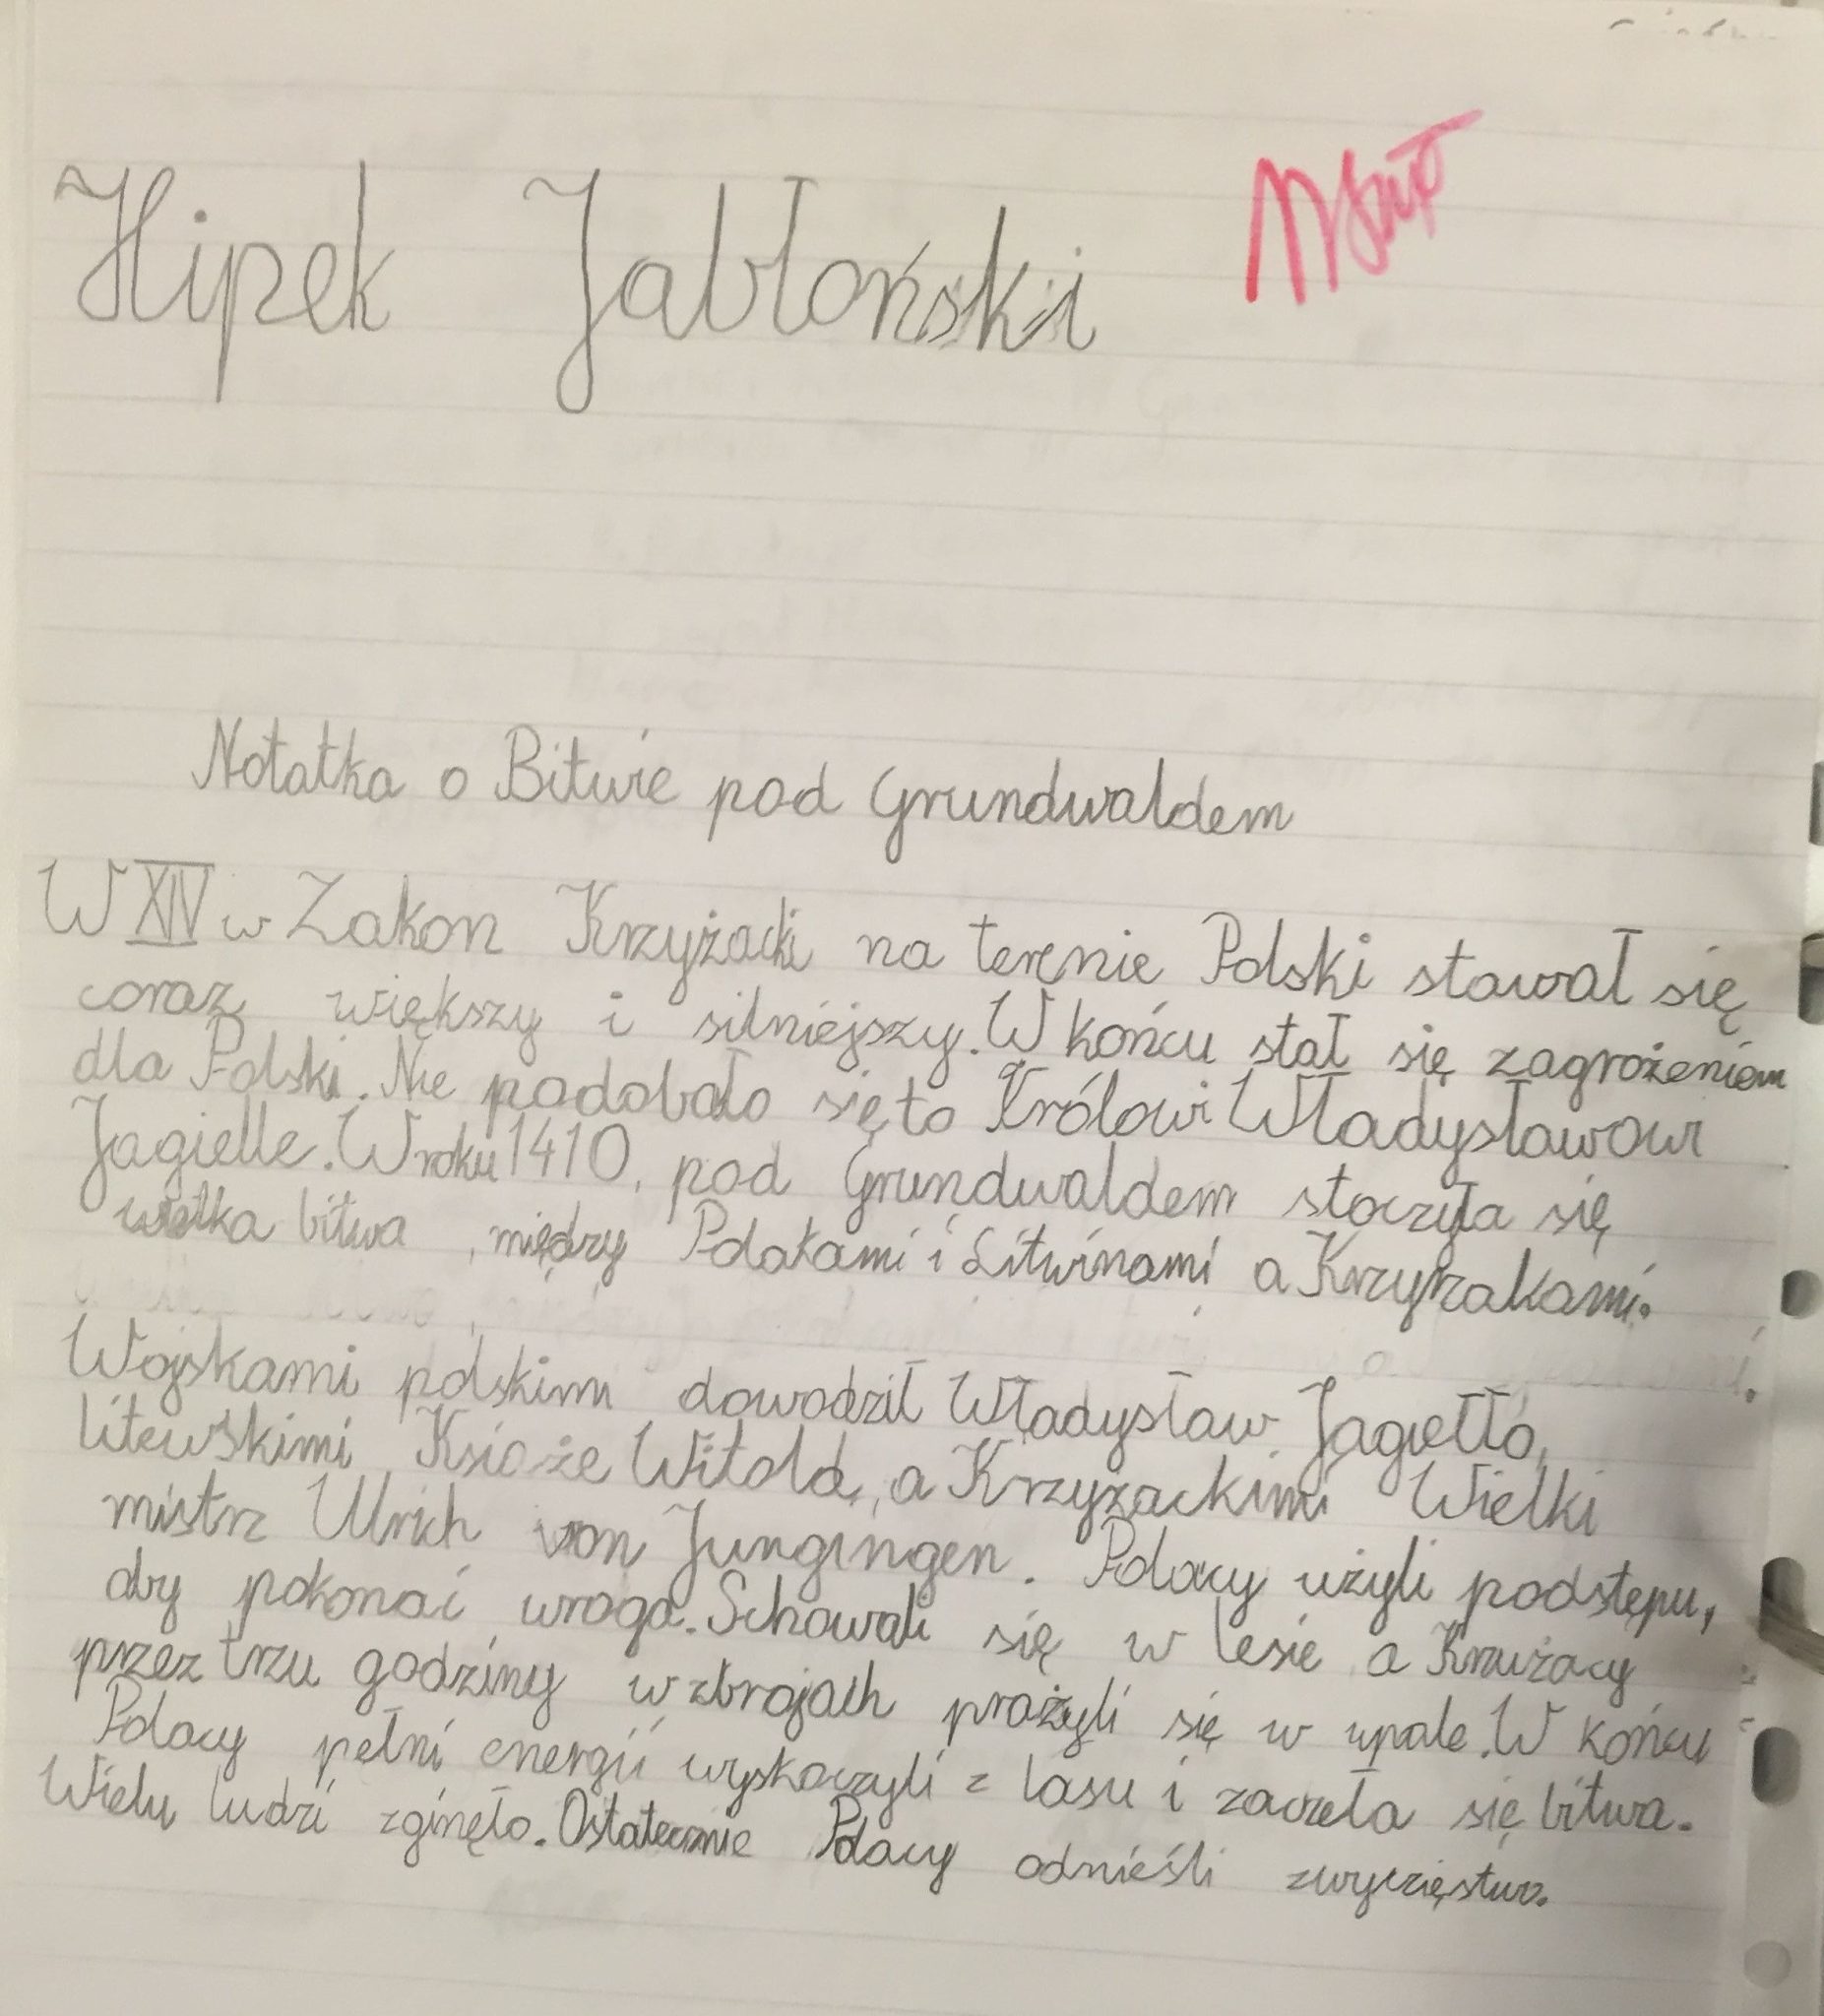 Hipek Jabłoński
Notatka o Bitwie pod Grundwaldem
W XIV w Zakon Krzyżacki na terenie Polski stawał się
coraz większy i silniejszy. W końcu stał się zagrożeniem
dla Polski. Nie podobało się to Królowi Władysławowi
Jagielle. W roku 1410, pod Grundwaldem stoczyła się
wielka bitwa, między Polakami i Litwinami a Krzyżakami.
Wojskami polskimi dowodził Władysław Jagiełło,
litewskimi Ksioże Witold, a Krzyzackimi Wielki
mistrz Ulrich von Jungingen. Polacy użyli podstępu,
aby pokonać wroga. Schowali się w lesie a Krzużacy
przez trzu godziny w zbrojach prażyli się w upale. W końcu
Polacy pełni energii wyskoczyli z lasu i zaczeła się bitwa.
Wielu ludzi zginęło. Ostatecznie Polacy odnieśli zwyczięstwo.